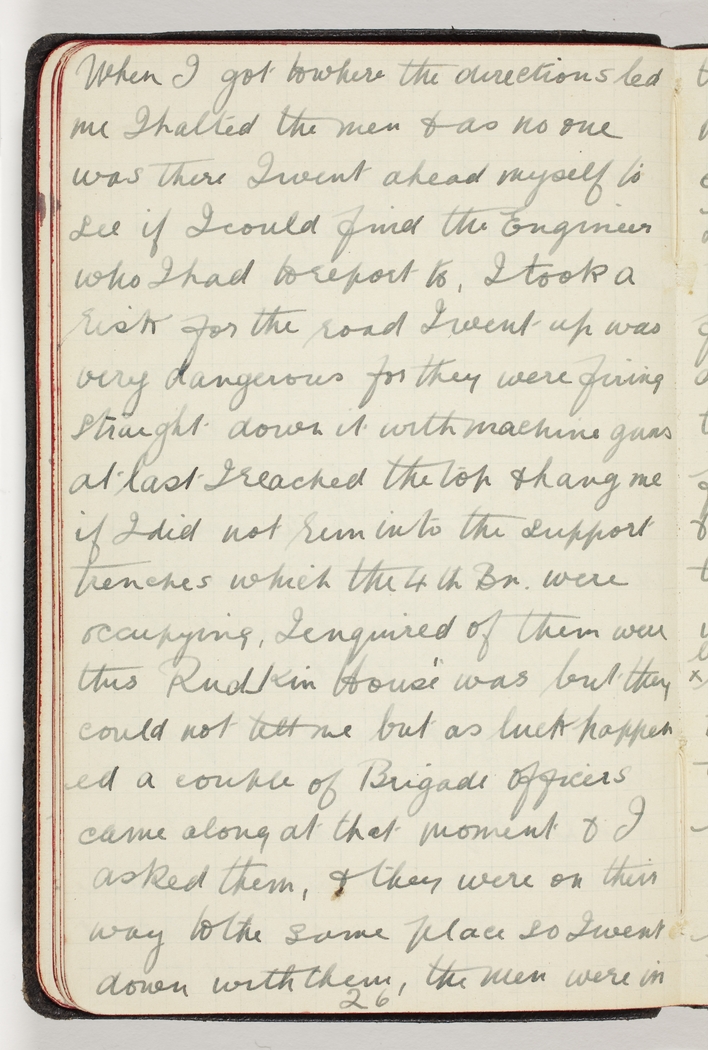 When I got to where the directions led
me I halted the men & as no one
was there I went ahead myself to
see if I could find the Engineer
who I had to report to, I took a
risk for the road I went up was
very dangerous for they were firing
straight down it with machine guns
at last I reached the top & hang me
if I did not run into the support
trenches which the 4th Bn. were
occupying, I enquired of them were
this Rudkin House was but they
could not tell me but as luck happen
ed a couple of Brigade officers
came along at that moment & I
asked them, & they were on their
way to the same place so I went
down with them, the men were in
26